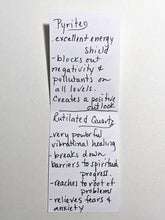 Pyrites
- excellent energy
shield
- blocks out
negativity &
pollutants on
all levels.
Creates a positive
outlook
Rutilated Quartz
- very powerful
vibrational healing
- breaks down
barriers to spiritual
progress.
- reaches to root of
problems
- relieves fears &
anxiety